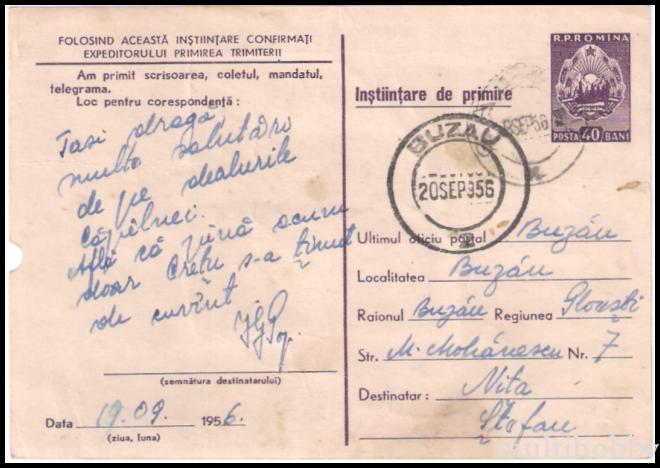 FOLOSIND ACEASTĂ INȘTIINȚARE CONFIRMAȚI
EXPEDITORULUI PRIMIREA TRIMITERII
Am primit scrisoarea, coletul, mandatul,
telegrama.
Loc pentru corespondență :
dragă
multe salutări
de pe dealurile
Află că până acum
doar Crețu s-a ținut
de cuvânt
(semnătura destinatarului)
Data 19.09. 1956.
(ziua, luna)
R.P.ROMINA
POSTA 40 BANI
Inștiințare de primire
SEP 56
BUZAU
20SEP956
2
Ultimul oficiu poștal Buzău
Localitatea Buzău
Raionul Buzău Regiunea Ploești
Str. M. Mohănescu Nr. 7
Destinatar : Nita
Ștefan
multihobby